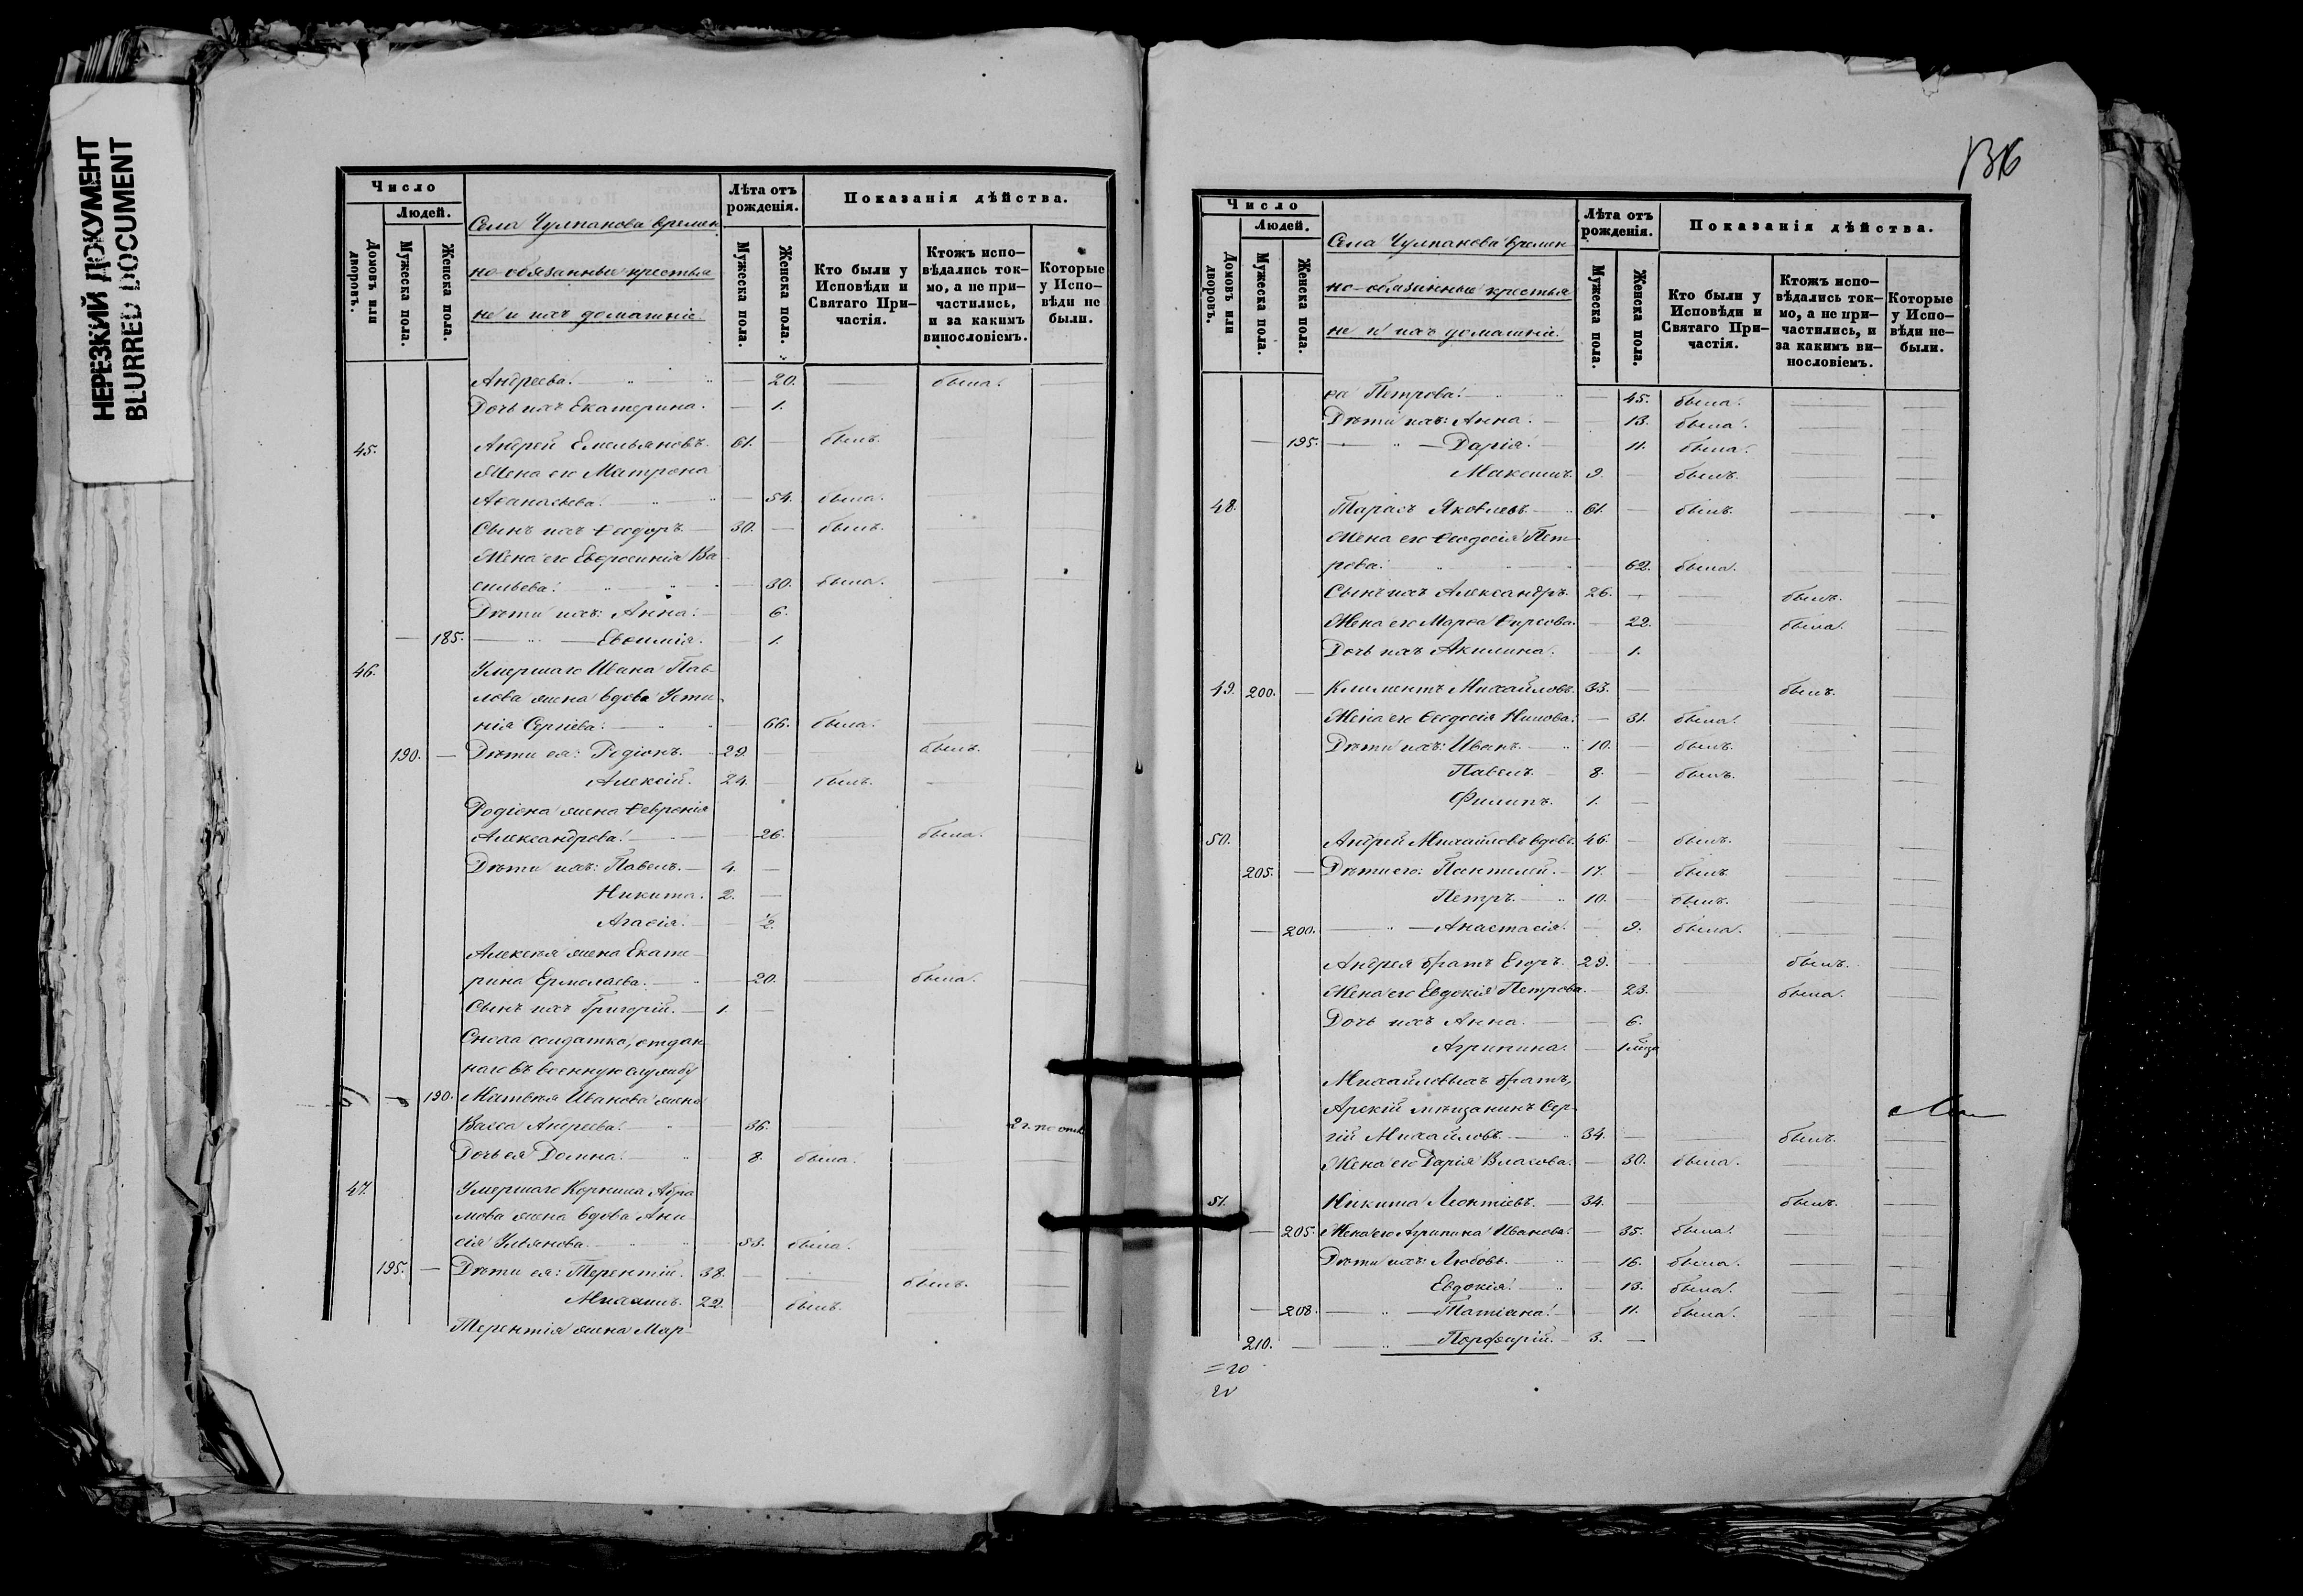 НЕРЕЗКИЙ ДОКУМЕНТ
BLURRED DOCUMENT
Число
Людей.
Домовъ или дворовъ.
Мужеска пола.
Женска пола.
Села Чулпанова времен
но-обязанные крестья
не и ихъ домашніе.
Лѣта отъ рожденія.
Мужеска пола.
Женска пола.
Показанія дѣйства.
Кто были у Исповѣди и Святаго Причастія.
Ктожъ исповѣдались токмо, а не причастились, и за какимъ винословіемъ.
Которые у Исповѣди не были.
Андреева. — 20. — была.
Дочь ихъ Екатерина. — 1.
45. Андрей Емельяновъ. 61. — былъ.
Жена его Матрона
Аѳанасьева. — 54. была.
Сынъ ихъ Ѳеодоръ. — 30. — былъ.
Жена его Евѳросинія Ва
сильева. — 30. была.
Дѣти ихъ: Анна. — 6.
— 185. — Евѳимія. — 1.
46. Умершаго Ивана Пав-
лова жена вдова Усти
нія Сергіева. — 66. была.
190. — Дѣти ея: Родіонъ. 29. — былъ.
Алексій. 24. — былъ.
Родіона жена Ѳевронія
Александрова. — 26. — была.
Дѣти ихъ: Павелъ. — 4. —
Никита. 2. —
Агаѳія. — ½.
Алексѣя жена Екате-
рина Ермолаева. — 20. — была.
Сынъ ихъ Григорій. — 1. —
Сноха солдатка, отдан
наго въ военную службу
— 190. Матвѣя Иванова жена
Васса Андреева. — 36. — 2 г. по отл.
Дочь ея Домна. — 8. была.
47. Умершаго Корнила Абра
мова жена вдова Ани
сія Ульянова. — 53. была.
195. — Дѣти ея: Терентій. 38. — былъ.
Михаилъ. 22. былъ.
Терентія жена Мар-
136
Число
Людей.
Домовъ или дворовъ.
Мужеска пола.
Женска пола.
Села Чулпанова времен
но-обязанные крестья
не и ихъ домашніе.
Лѣта отъ рожденія.
Мужеска пола.
Женска пола.
Показанія дѣйства.
Кто были у Исповѣди и Святаго Причастія.
Ктожъ исповѣдались токмо, а не причастились, и за какимъ винословіемъ.
Которые у Исповѣди небыли.
ѳа Петрова. — 45. была.
Дѣти ихъ: Анна. — 13. была.
— 195. — Дарія. 11. была.
Максимъ. 9. — былъ.
48. Тарасъ Яковлевъ. 61. — былъ.
Жена его Ѳеодосія Пет-
рова. — 62. была.
Сынъ ихъ Александръ. 26. — былъ.
Жена его Марѳа Ѳирсова. — 22. — была.
Дочь ихъ Акилина. — 1.
49. 200. — Климентъ Михайловъ. 33. — былъ.
Жена его Ѳеодосія Нилова. — 31. была.
Дѣти ихъ: Иванъ. — 10. — былъ.
Павелъ. 8. — былъ.
Филипъ. 1. —
50. Андрей Михайловъ вдовъ. 46. — былъ.
205. — Дѣти его: Пантелей. — 17. — былъ.
Петръ. — 10. — былъ.
— 200. — Анастасія. — 9. была.
Андрея братъ Егоръ. 29. — былъ.
Жена его Евдокія Петрова. — 23. — была.
Дочь ихъ Анна. — 6.
Агрипина. —
Михайловыхъ братъ,
мѣщанинъ Сер-
гій Михайловъ. — 34. — былъ.
Жена его Дарія Власова. — 30. была.
51. Никита Леонтіевъ. — 34. — былъ.
— 205. Жена его Агрипина Иванова. — 35. была.
Дѣти ихъ: Любовь. — 16. была.
Евдокія. — 13. была.
— 208. — Татіана. — 11. была.
210. — Порфирій. — 3. —
=20